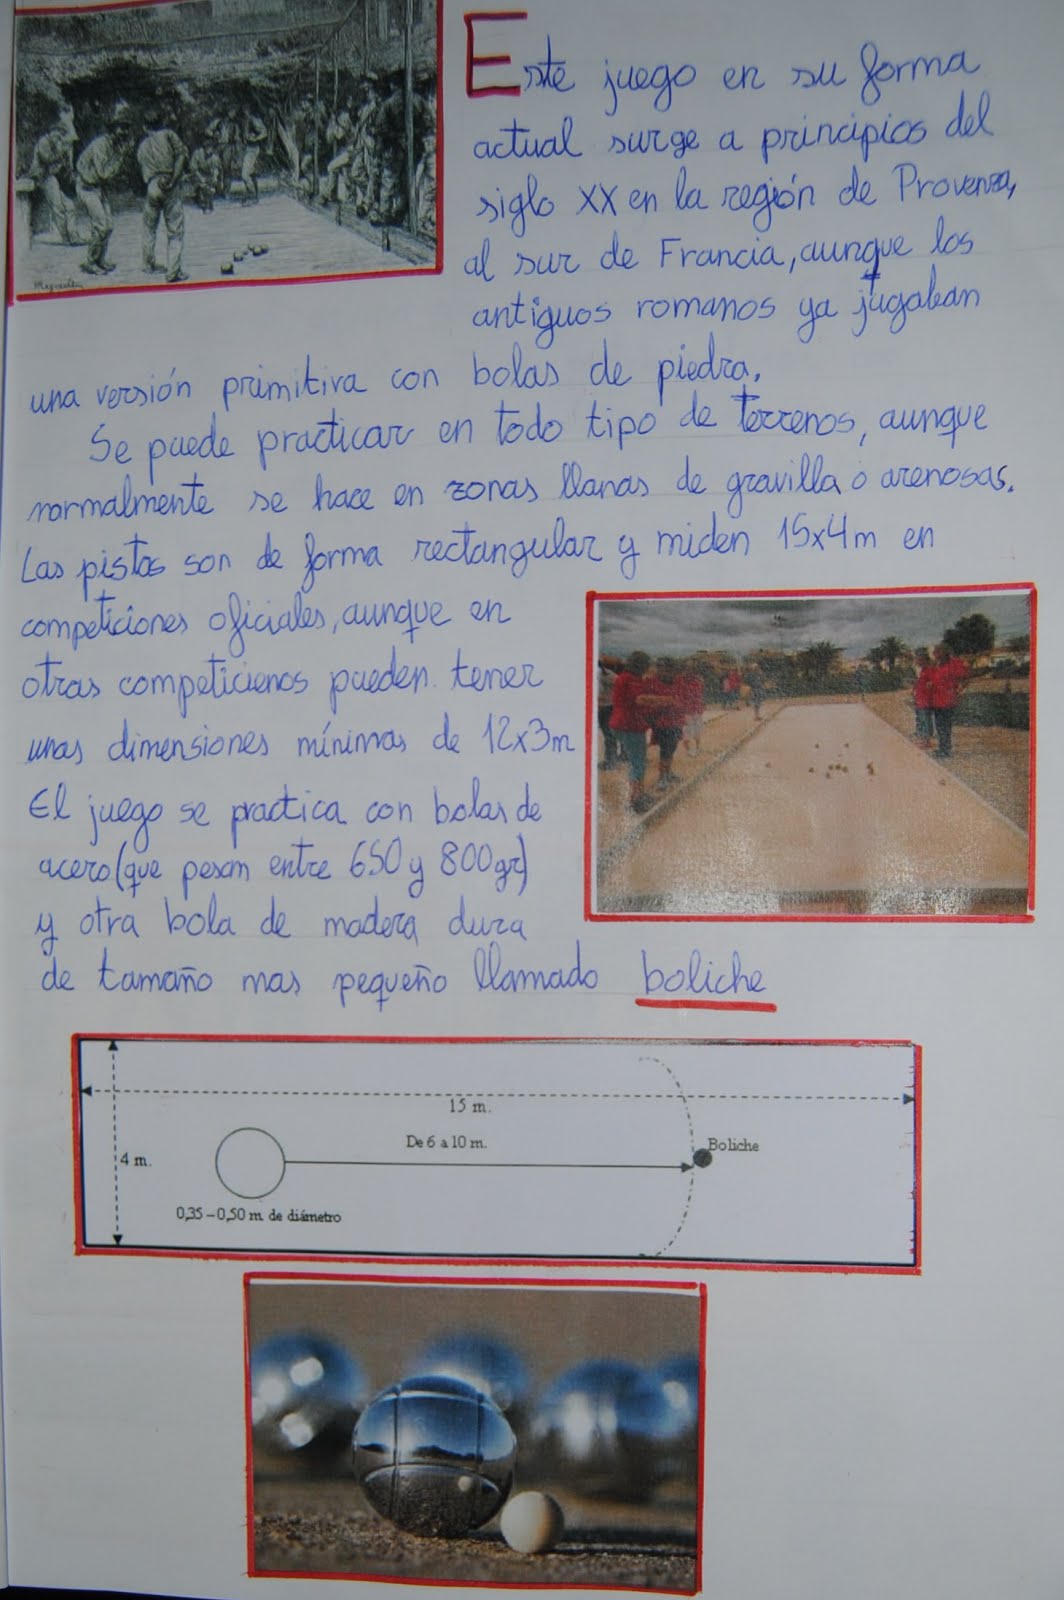 Este juego en su forma
actual surge a principios del
siglo XX en la región de Provenza,
al sur de Francia, aunque los
antiguos romanos ya jugaban
una versión primitiva con bolas de piedra.
Se puede practicar en todo tipo de terrenos, aunque
normalmente se hace en zonas llanas de gravilla o arenosas.
Las pistas son de forma rectangular y miden 15x4m en
competiciones oficiales, aunque en
otras competicienos pueden tener
unas dimensiones mínimas de 12x3m
El juego se practica con bolas de
acero (que pesan entre 650 y 800gr)
y otra bola de madera dura
de tamaño mas pequeño llamado boliche
15 m.
De 6 a 10 m.
Boliche
4 m.
0,35 – 0,50 m. de diámetro